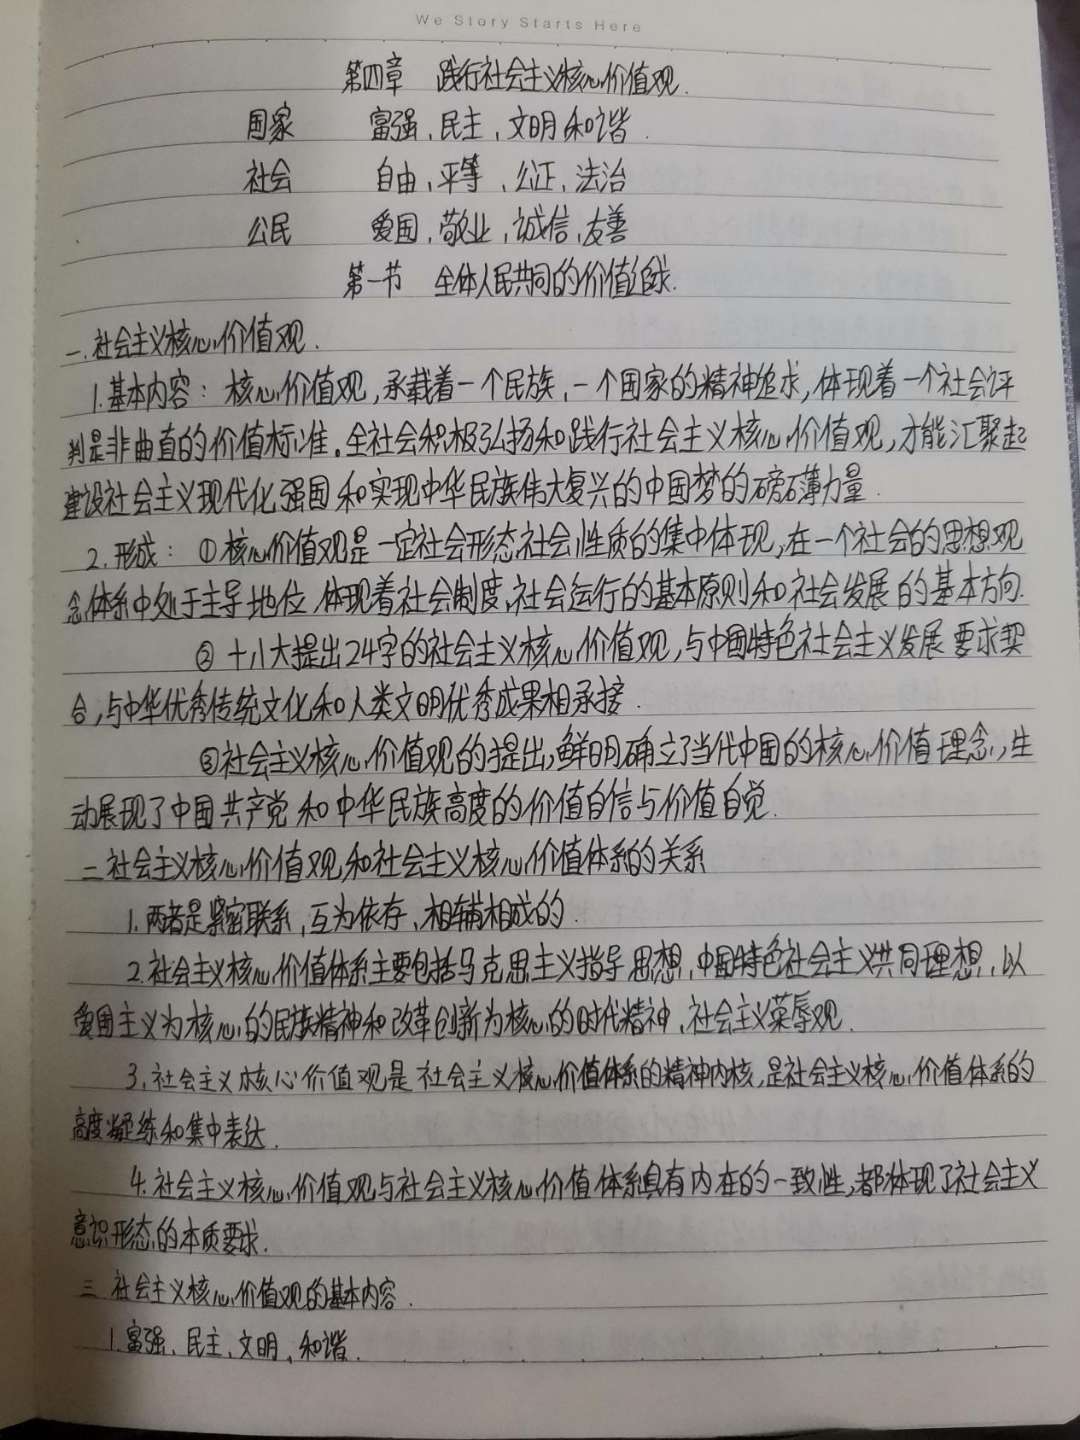 We Story Starts Here
第四章 践行社会主义核心价值观.
国家 富强、民主、文明和谐.
社会 自由、平等、公正、法治
公民 爱国、敬业、诚信、友善
第一节 全体人民共同的价值追求.
一.社会主义核心价值观.
1.基本内容：核心价值观,承载着一个民族、一个国家的精神追求,体现着一个社会评
判是非曲直的价值标准。全社会积极弘扬和践行社会主义核心价值观,才能汇聚起
建设社会主义现代化强国和实现中华民族伟大复兴的中国梦的磅礴力量.
2.形成：①核心价值观是一定社会形态社会性质的集中体现,在一个社会的思想观
念体系中处于主导地位 体现着社会制度、社会运行的基本原则和社会发展的基本方向.
②十八大提出24字的社会主义核心价值观,与中国特色社会主义发展要求契
合,与中华优秀传统文化和人类文明优秀成果相承接.
③社会主义核心价值观的提出,鲜明确立了当代中国的核心价值理念,生
动展现了中国共产党和中华民族高度的价值自信与价值自觉.
二社会主义核心价值观和社会主义核心价值体系的关系
1.两者是紧密联系、互为依存、相辅相成的.
2.社会主义核心价值体系主要包括马克思主义指导思想、中国特色社会主义共同理想、以
爱国主义为核心的民族精神和改革创新为核心的时代精神、社会主义荣辱观.
3.社会主义核心价值观是社会主义核心价值体系的精神内核,是社会主义核心价值体系的
高度凝练和集中表达.
4.社会主义核心价值观与社会主义核心价值体系具有内在的一致性,都体现了社会主义
意识形态的本质要求.
三 社会主义核心价值观的基本内容.
1.富强、民主、文明、和谐.